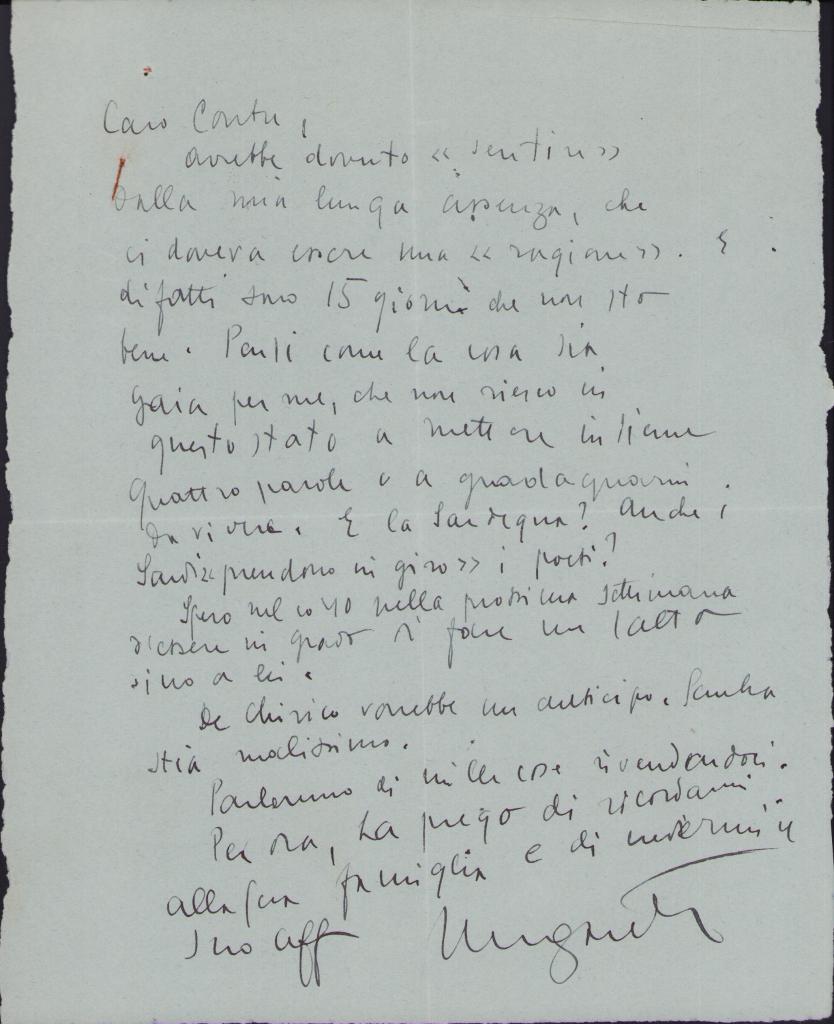 Caro Contu,
avrebbe dovuto « sentire »
dalla mia lunga assenza, che
ci doveva essere una « ragione ». E
difatti sono 15 giorni che non sto
bene. Pensi come la cosa sia
gaia per me, che non riesco in
questo stato a mettere insieme
quattro parole e a guadagnarmi
da vivere. E la Sardegna? Anche i
Sardi « prendono in giro » i poeti?
Spero nel corso nella prossima settimana
d'essere in grado di fare un salto
sino a lei.
De Chirico vorrebbe un anticipo. Sembra
stia malissimo.
Parleremo di mille cose rivendendoci.
Per ora, La prego di ricordarmi
alla sua famiglia e di credermi il
Suo aff
Ungaretti